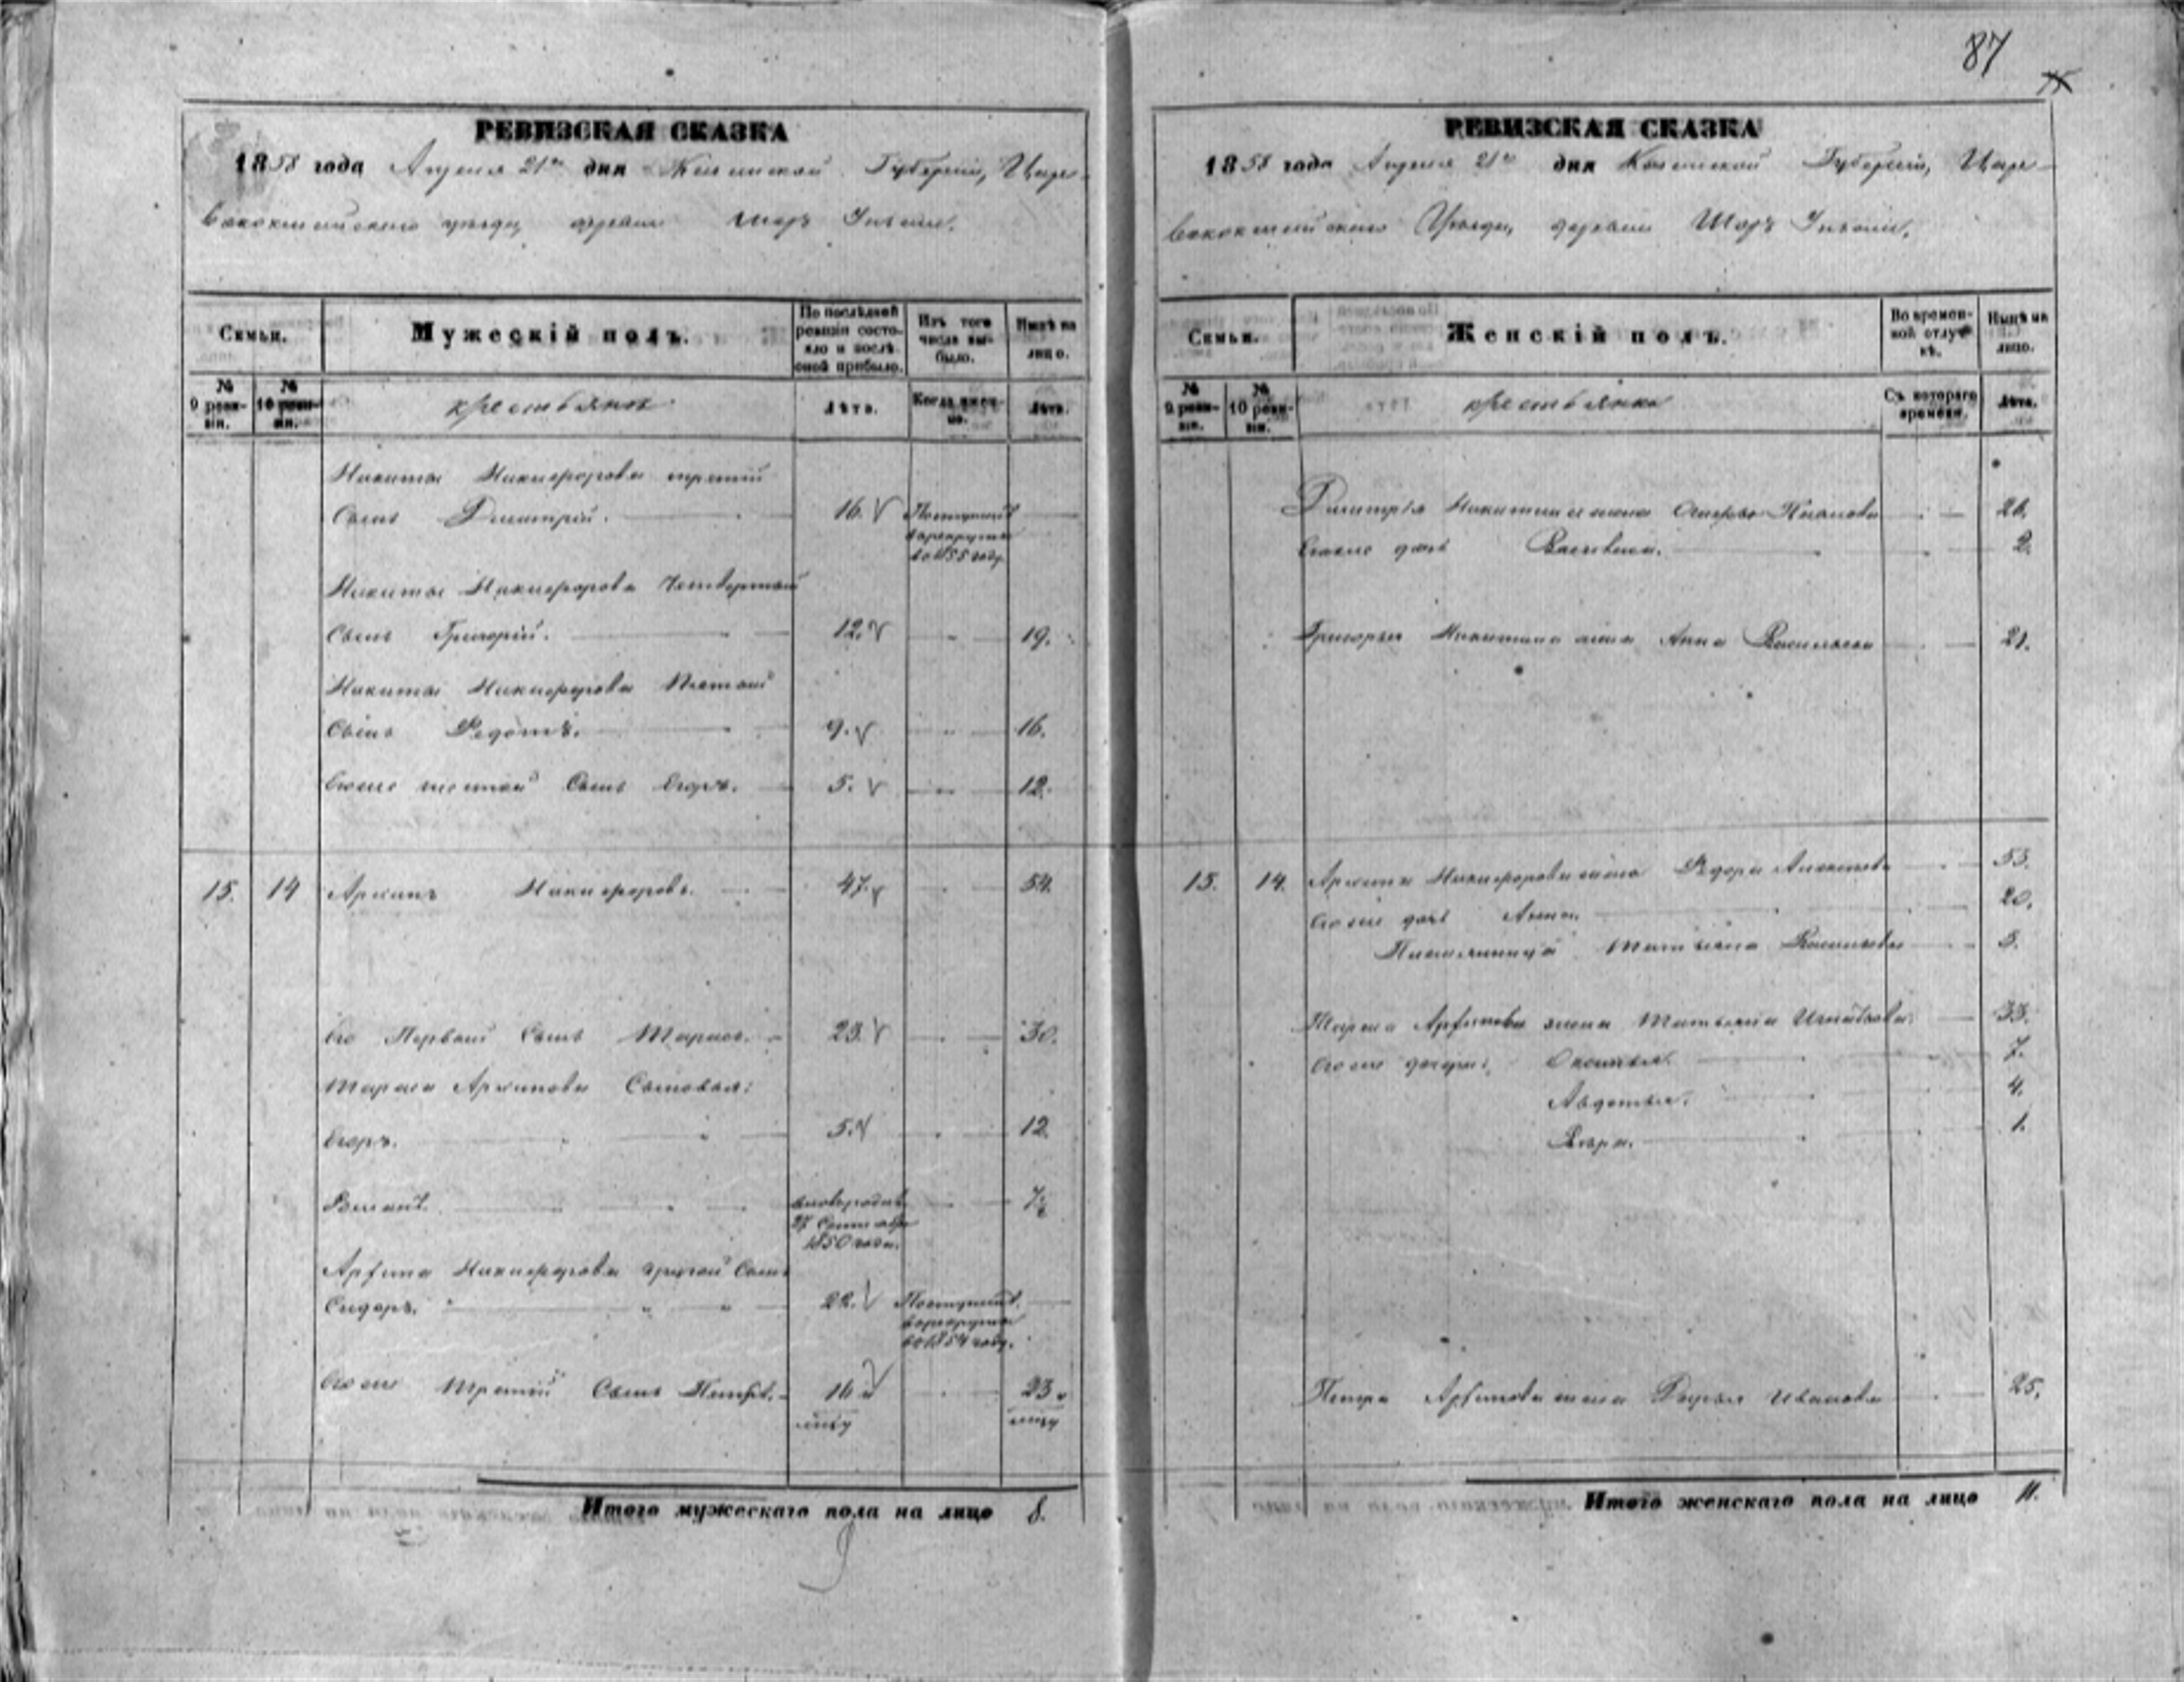 87
РЕВИЗСКАЯ СКАЗКА
1858 года Апреля 21го дня Казанской Губернии, Царе-
вококшайского уезда, деревни Шоръ
Семьи.
Мужескій полъ.
По послѣдней ревизіи состояло и послѣ оной прибыло.
Изъ того числа выбыло.
Нынѣ на лицо.
№ 9 ревизіи.
№ 10 ревизіи.
крестьяне
Лѣта.
Когда именно.
Лѣта.
Никиты Никифорова третій
Сынъ Димитрій. 16. Поступилъ
в рекруты
в 1855 году
Никиты Никифорова Четвертый
Сынъ Григорій. 12. 19.
Никиты Никифорова Пятый
Сынъ Федотъ. 9. 16.
Его же шестой Сынъ Егоръ. 5. 12.
15. 14 Архипъ Никифоровъ. 47. 54.
Его Первый Сынъ Тарасъ. 23. 30.
Тараса Архипова Сыновья:
Егоръ. 5. 12.
новорожд.
27 Сентября
1850 года.
Архипа Никифорова другой Сынъ
Сидоръ. 22. Поступилъ
в рекруты
в 1854 году.
Его же Третій Сынъ Петръ. 16 23
Итого мужескаго пола на лицо 8.
9
РЕВИЗСКАЯ СКАЗКА
1858 года Апреля 21го дня Казанской Губерніи, Царе-
вококшайского Уезда, деревни Шоръ
Семьи.
Женскій полъ.
Во временной отлучкѣ.
Нынѣ на лицо.
№ 9 ревизіи.
№ 10 ревизіи.
крестьянки
Съ котораго времени.
Лѣта.
Димитрія Никитина жена Иванова
Его же дочь 2.
Григорья Никитина жена Анна Васильева 21.
15. 14. Архипа Никифорова жена Федора 53.
Его же дочь Анна. 20.
Татьяна Васильева
Тараса Архипова жена Татьяна 33.
Его же дочери: 7.
Авдотья. 4.
1.
Петра Архипова жена Дарья Иванова 25.
Итого женскаго пола на лицо 11.